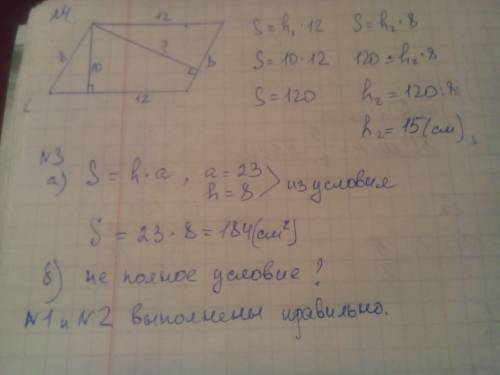 №4.
12
8
10
?
8
12
S = h₁ · 12
S = h₂ · 8
S = 10 · 12
120 = h₂ · 8
S = 120
h₂ = 120:8
h₂ = 15 (см),
№3
а) S = h · a, a = 23
h = 8 из условия
S = 23 · 8 = 184 (см²)
б) не полное условие?
№1 и №2 выполнены правильно.